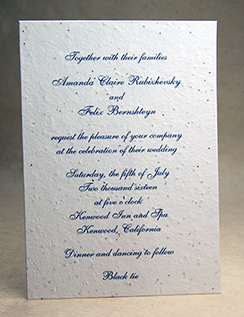 Together with their families
Amanda Claire Rubizhevsky
and
Felix Bernshteyn
request the pleasure of your company
at the celebration of their wedding
Saturday, the fifth of July
Two thousand sixteen
at five o'clock
Kenwood Inn and Spa
Kenwood, California
Dinner and dancing to follow
Black tie